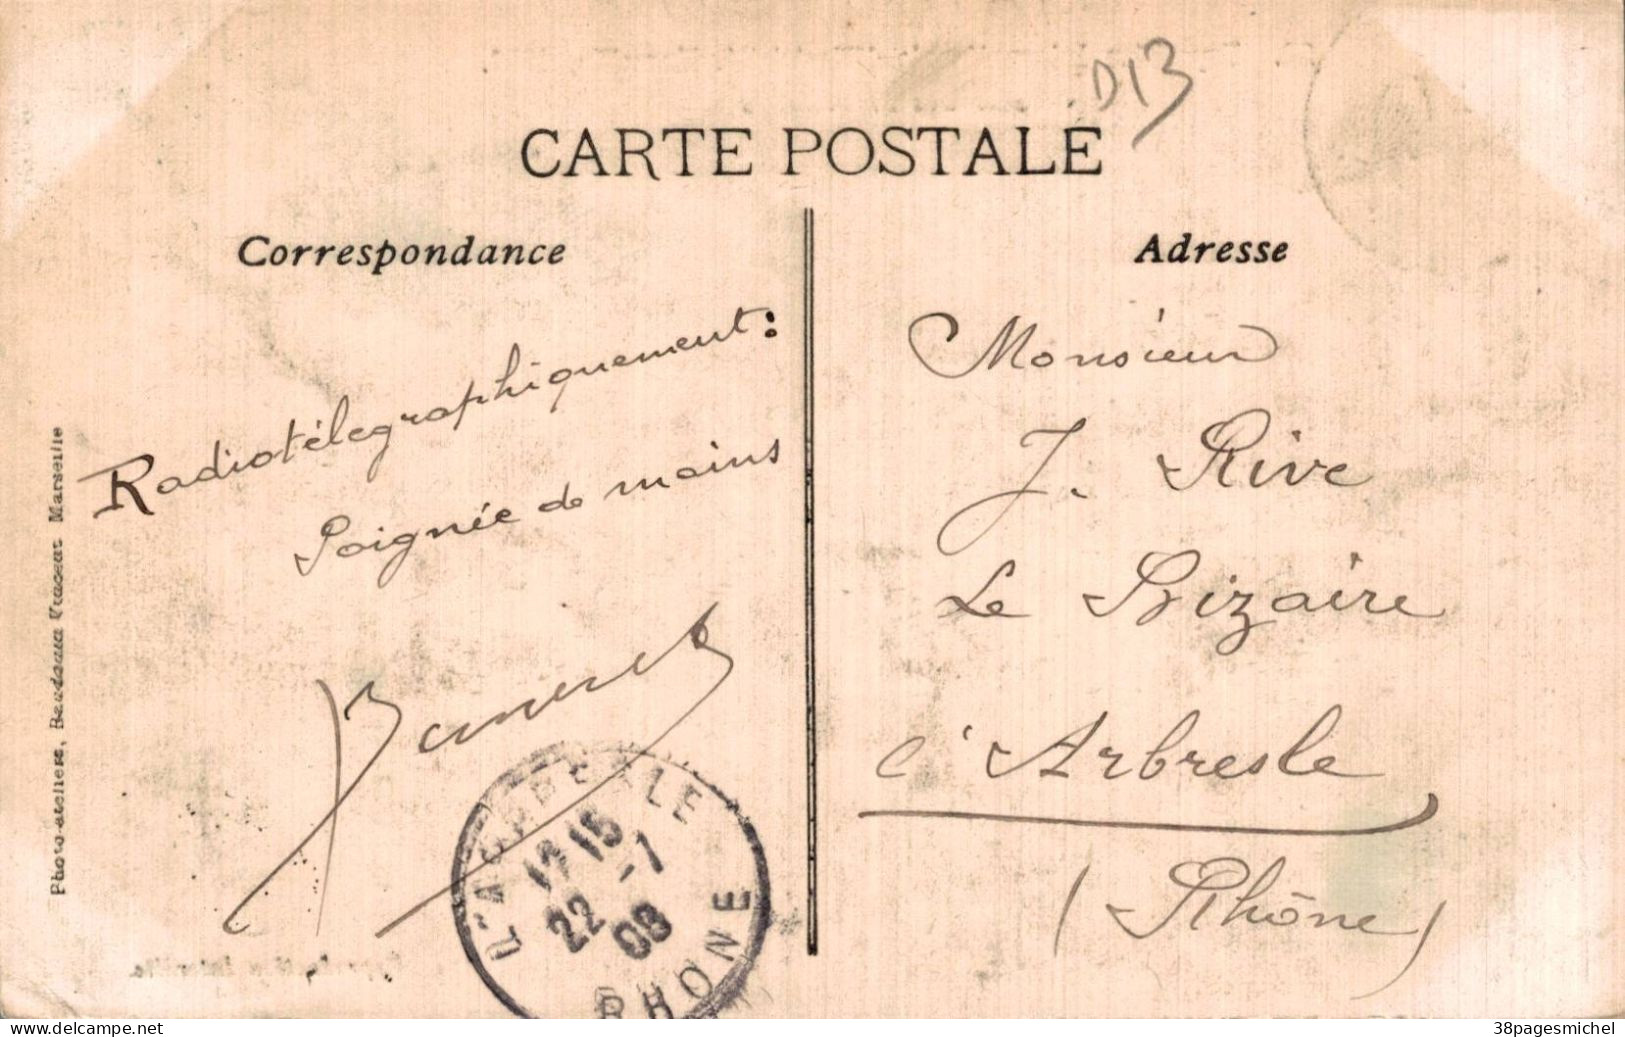 D13
CARTE POSTALE
Correspondance
Adresse
Radiotélégraphiquement:
Poignée de mains
Monsieur
J. Rive
Le Bizaire
l'Arbresle
(Rhône)
L'ARBRESLE
17 15
22 -7
08
RHONE
Photo-ateliers, Beudeaux Vincent Marseille
38pagesmichel
www.delcampe.net